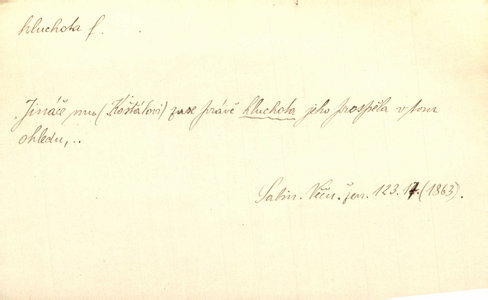 hluchota f.
Jináče mu (Košťálovi) zase právě hluchota jeho prospěla v tom
ohledu,..
Sabin. Věčn. žen. 123. 17. (1863).